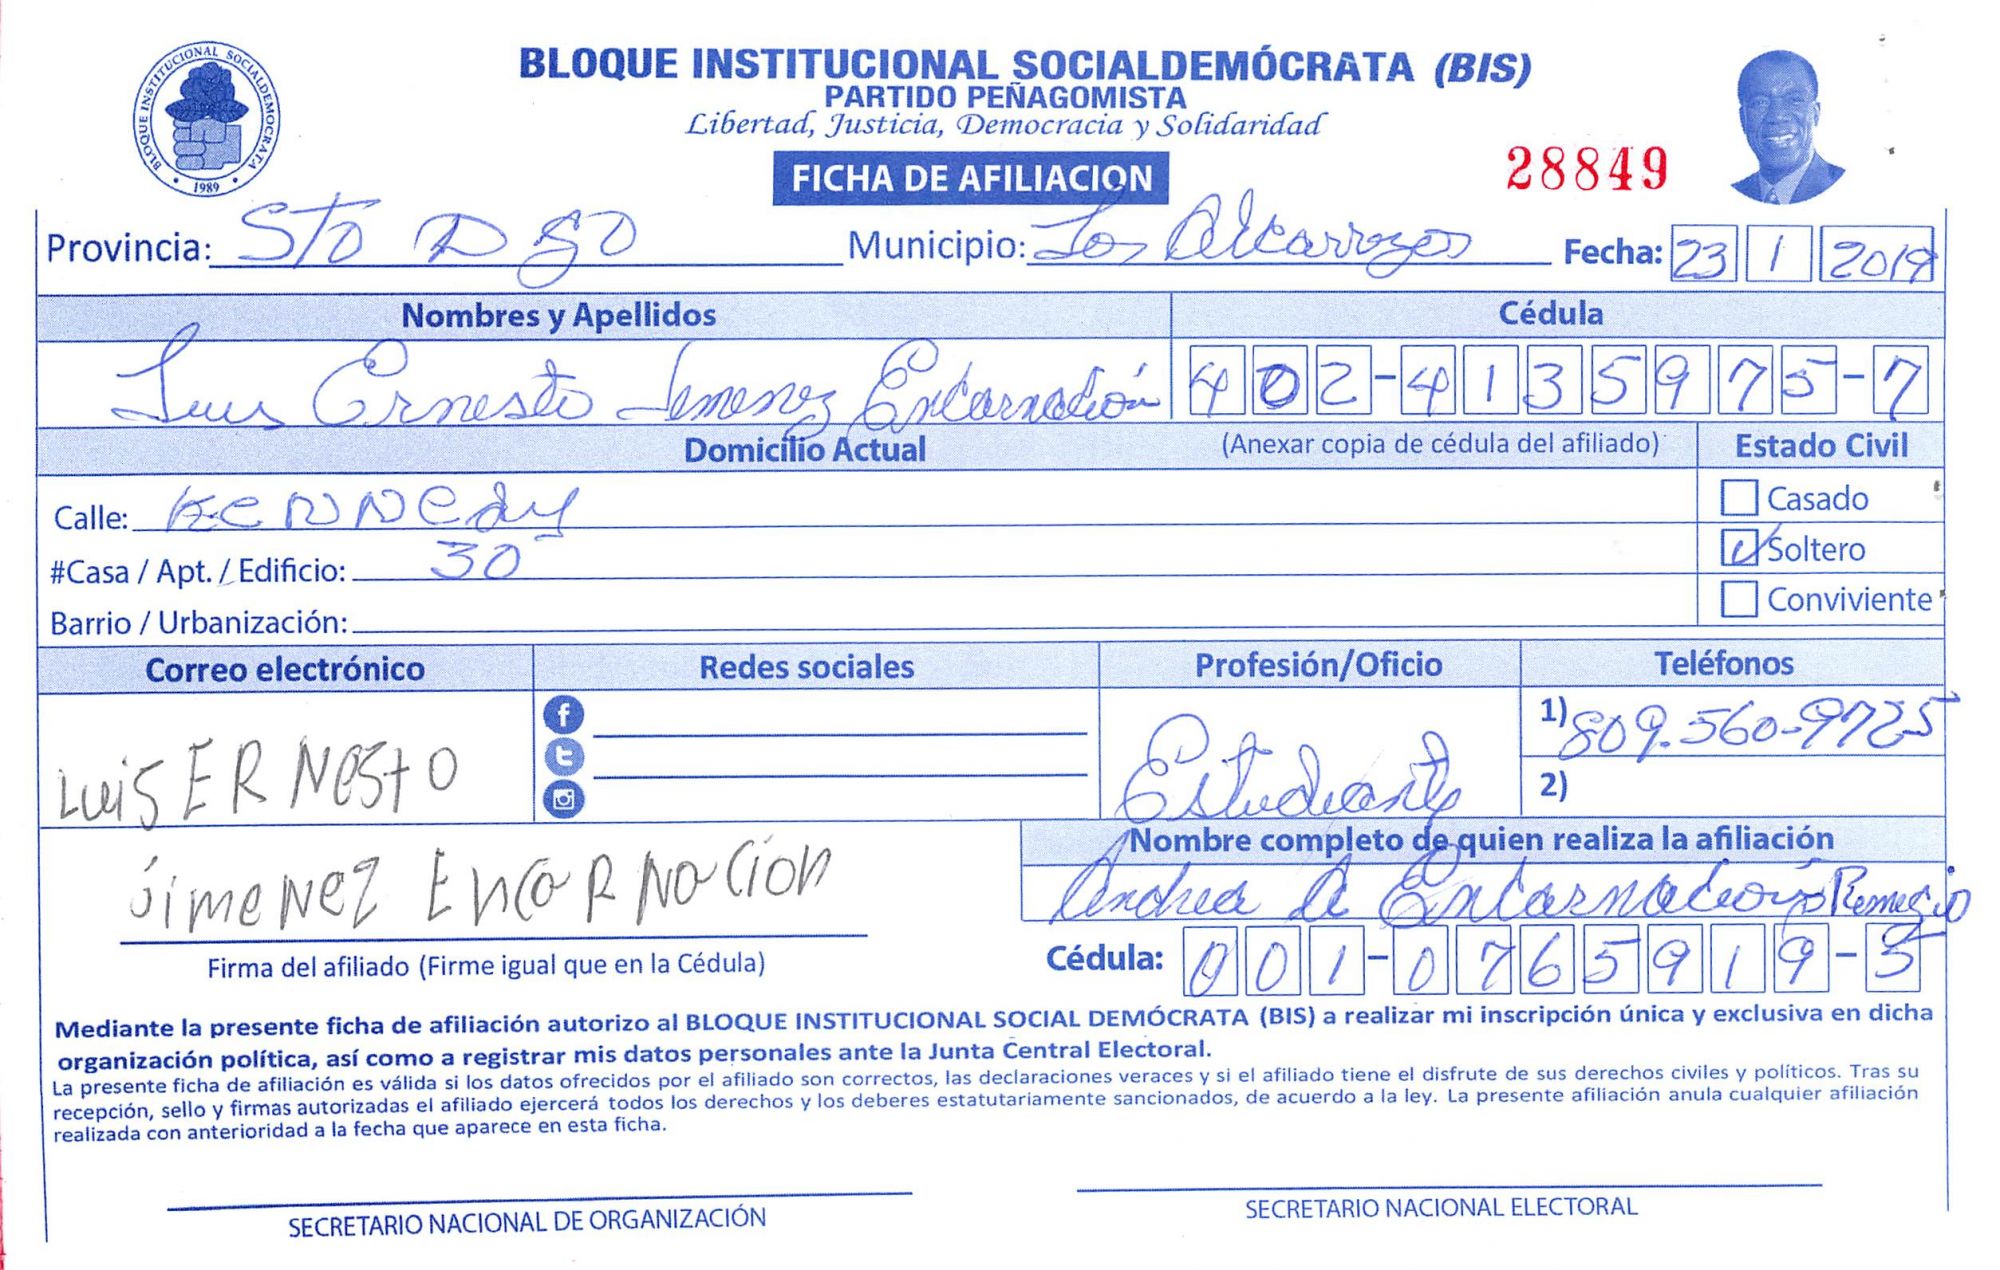 BLOQUE INSTITUCIONAL SOCIALDEMÓCRATA (BIS)
PARTIDO PEÑAGOMISTA
Libertad, Justicia, Democracia y Solidaridad
BLOQUE INSTITUCIONAL SOCIALDEMOCRATA
• 1989 •
FICHA DE AFILIACION
28849
Provincia: Sto Dgo Municipio: Los Alcarrizos Fecha: 23 1 2019
Nombres y Apellidos Cédula
Luis Ernesto Jimenez Encarnación 402-4135975-7
Domicilio Actual (Anexar copia de cédula del afiliado) Estado Civil
Calle: Kennedy Casado
#Casa / Apt. / Edificio: 30 Soltero
Barrio / Urbanización: Conviviente
Correo electrónico Redes sociales Profesión/Oficio Teléfonos
Estudiante 1) 809.560-9725
2)
LuiS ERNesto
jimeNez ENcaRNacion
Nombre completo de quien realiza la afiliación
Andrea A Encarnación Remigio
Firma del afiliado (Firme igual que en la Cédula) Cédula: 001-0765919-5
Mediante la presente ficha de afiliación autorizo al BLOQUE INSTITUCIONAL SOCIAL DEMÓCRATA (BIS) a realizar mi inscripción única y exclusiva en dicha
organización política, así como a registrar mis datos personales ante la Junta Central Electoral.
La presente ficha de afiliación es válida si los datos ofrecidos por el afiliado son correctos, las declaraciones veraces y si el afiliado tiene el disfrute de sus derechos civiles y políticos. Tras su
recepción, sello y firmas autorizadas el afiliado ejercerá todos los derechos y los deberes estatutariamente sancionados, de acuerdo a la ley. La presente afiliación anula cualquier afiliación
realizada con anterioridad a la fecha que aparece en esta ficha.
SECRETARIO NACIONAL DE ORGANIZACIÓN SECRETARIO NACIONAL ELECTORAL